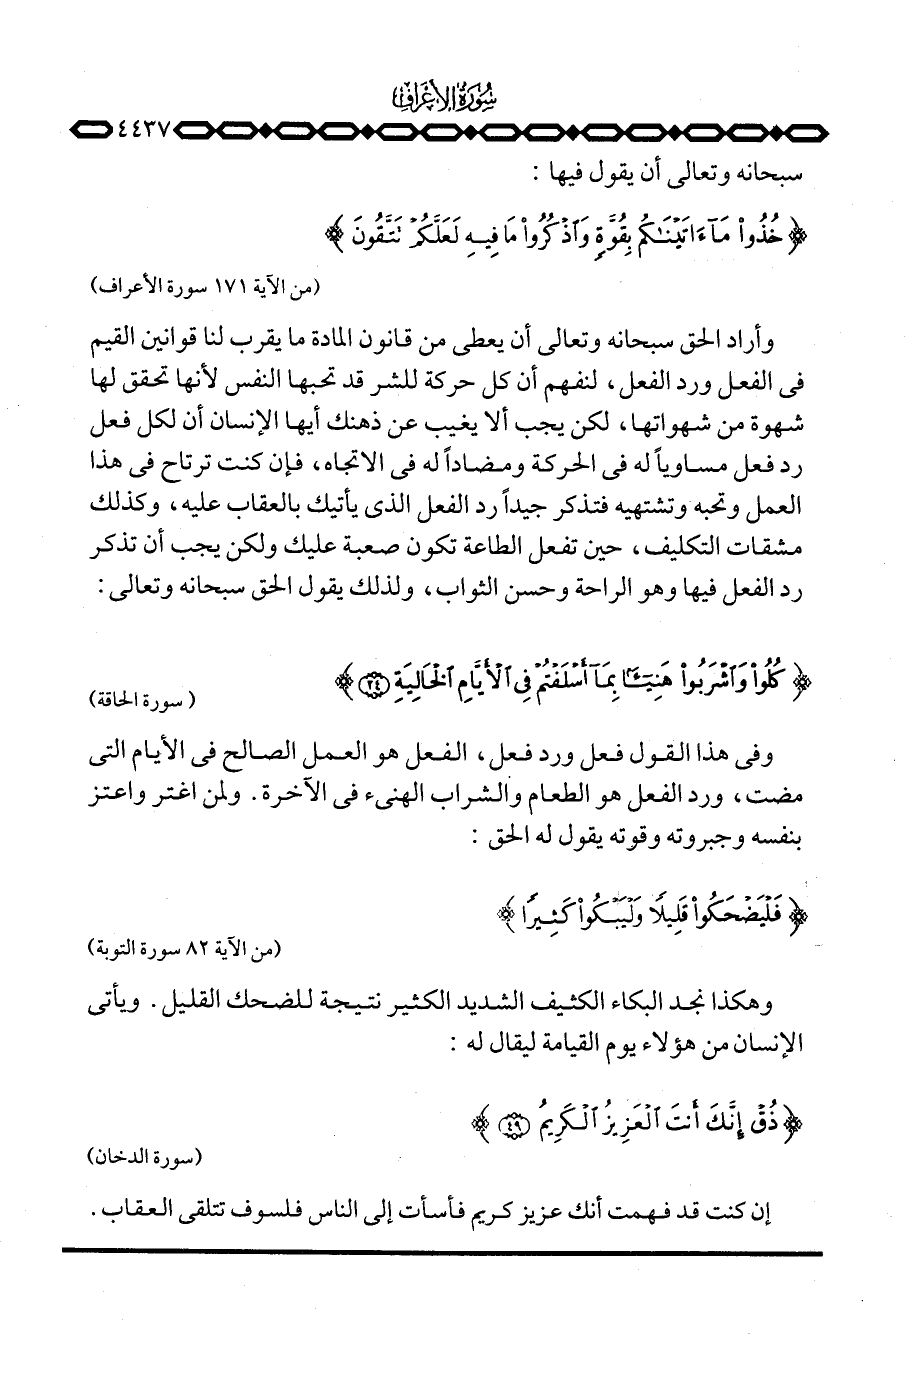 سورة الأعراف
٤٤٣٧
سبحانه وتعالى أن يقول فيها :
﴿ خُذُوا۟ مَآ ءَاتَيْنَـٰكُم بِقُوَّةٍ وَٱذْكُرُوا۟ مَا فِيهِ لَعَلَّكُمْ تَتَّقُونَ ﴾
(من الآية ١٧١ سورة الأعراف)
وأراد الحق سبحانه وتعالى أن يعطى من قانون المادة ما يقرب لنا قوانين القيم
فى الفعل ورد الفعل، لنفهم أن كل حركة للشر قد تحبها النفس لأنها تحقق لها
شهوة من شهواتها، لكن يجب ألا يغيب عن ذهنك أيها الإنسان أن لكل فعل
رد فعل مساوياً له فى الحركة ومضاداً له فى الاتجاه، فإن كنت ترتاح فى هذا
العمل وتحبه وتشتهيه فتذكر جيداً رد الفعل الذى يأتيك بالعقاب عليه، وكذلك
مشقات التكليف، حين تفعل الطاعة تكون صعبة عليك ولكن يجب أن تذكر
رد الفعل فيها وهو الراحة وحسن الثواب، ولذلك يقول الحق سبحانه وتعالى :
﴿ كُلُوا۟ وَٱشْرَبُوا۟ هَنِيٓـًٔۢا بِمَآ أَسْلَفْتُمْ فِى ٱلْأَيَّامِ ٱلْخَالِيَةِ ٢٤ ﴾
( سورة الحاقة)
وفى هذا القول فعل ورد فعل، الفعل هو العمل الصالح فى الأيام التى
مضت، ورد الفعل هو الطعام والشراب الهنىء فى الآخرة. ولمن اغتر واعتز
بنفسه وجبروته وقوته يقول له الحق :
﴿ فَلْيَضْحَكُوا۟ قَلِيلًا وَلْيَبْكُوا۟ كَثِيرًا ﴾
(من الآية ٨٢ سورة التوبة)
وهكذا نجد البكاء الكثيف الشديد الكثير نتيجة للضحك القليل. ويأتى
الإنسان من هؤلاء يوم القيامة ليقال له :
﴿ ذُقْ إِنَّكَ أَنتَ ٱلْعَزِيزُ ٱلْكَرِيمُ ٤٩ ﴾
(سورة الدخان)
إن كنت قد فهمت أنك عزيز كريم فأسأت إلى الناس فلسوف تتلقى العقاب.